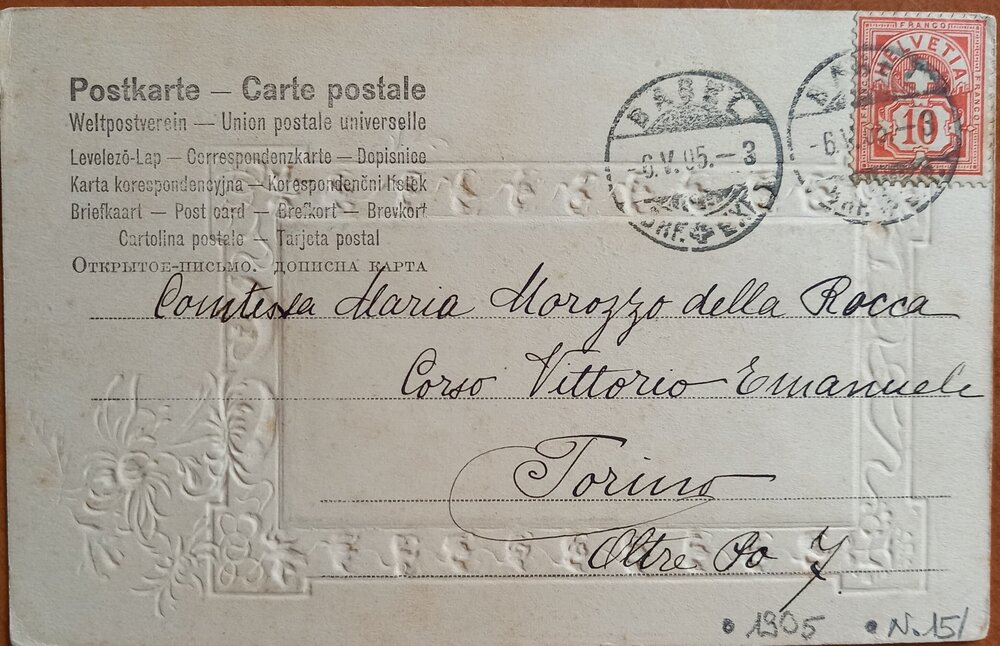 Postkarte — Carte postale
Weltpostverein — Union postale universelle
Levelező-Lap — Correspondenzkarte — Dopisnice
Karta korespondencyjna — Korespondenční lístek
Briefkaart — Post card — Brefkort — Brevkort
Cartolina postale — Tarjeta postal
Открытое-письмо. дописна карта
BASEL
-6.V.05.-3
BRF. EXP.
FRANCO
HELVETIA
10
Comtessa Maria Morozzo della Rocca
Corso Vittorio Emanuele
Torino
Oltre Po 7
1905
N. 15/